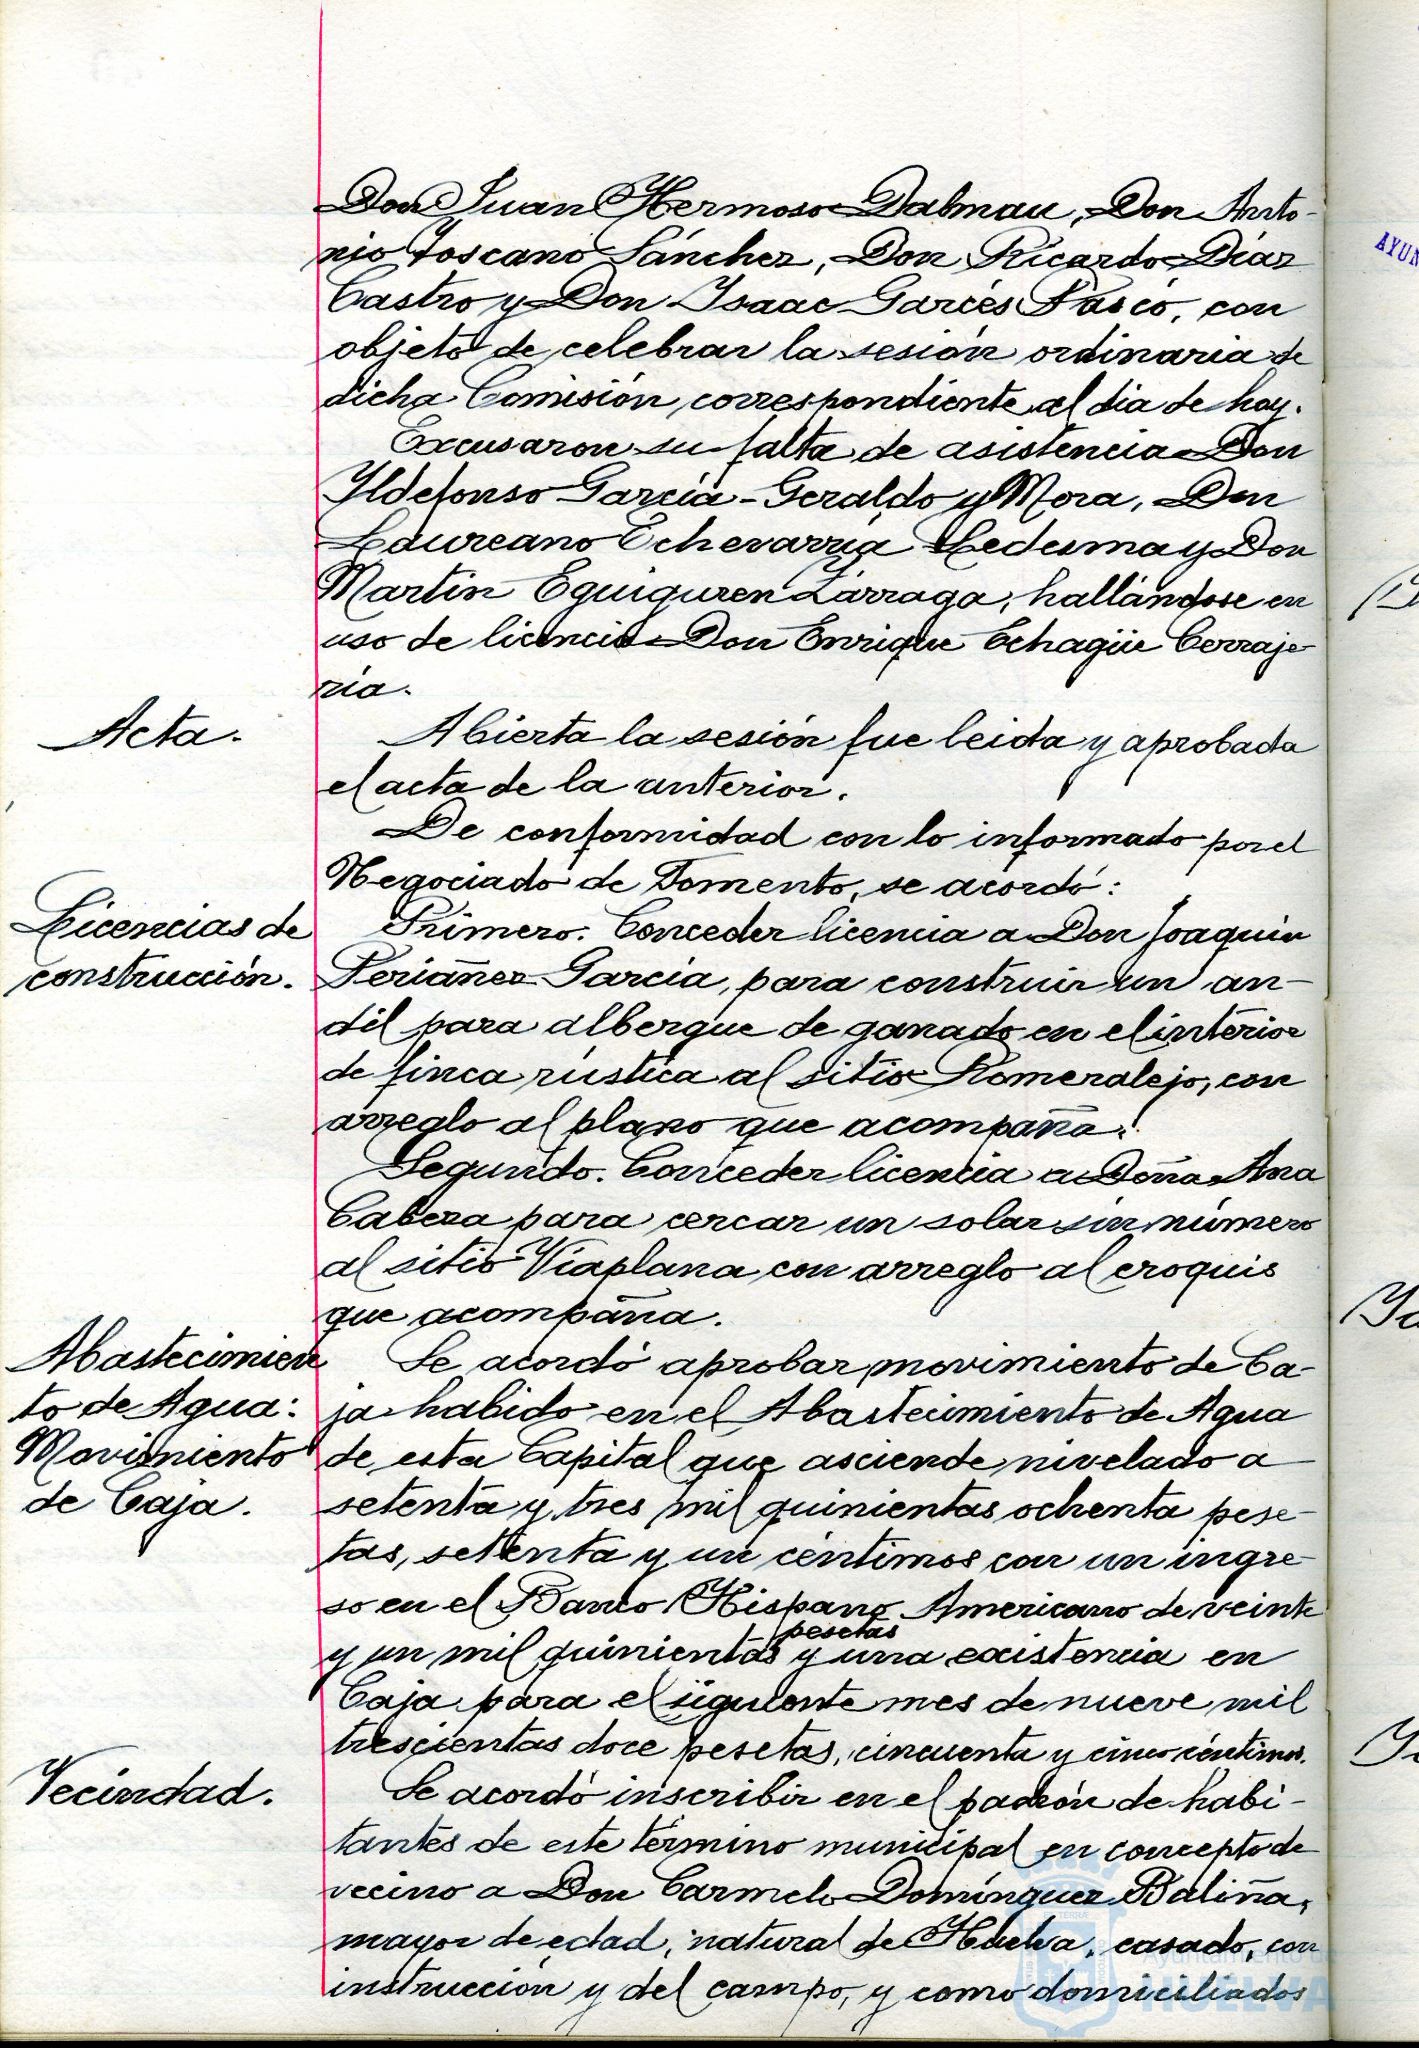 Don Juan Hermoso Dalmau, Don Anto-
nio Toscano Sánchez, Don Ricardo Díaz
Castro y Don Isaac Garcés Pascó, con
objeto de celebrar la sesión ordinaria de
dicha Comisión correspondiente al dia de hoy.
Excusaron su falta de asistencia Don
Yldefonso García-Geraldo y Mora, Don
Laureano Echevarría Ledesma y Don
Martin Eguiguren Zárraga, hallándose en
uso de licencia Don Enrique Echagüe Cerraje-
ria.
Acta.
Abierta la sesión fue leida y aprobada
el acta de la anterior.
De conformidad con lo informado por el
Negociado de Fomento, se acordó:
Licencias de
construcción.
Primero. Conceder licencia a Don Joaquin
Periáñez García, para construir un an-
dil para albergue de ganado en el interior
de finca rústica al sitio Romeralejo, con
arreglo al plano que acompaña.
Segundo. Conceder licencia a Doña Ana
Cabeza para cercar un solar sin número
al sitio Viaplana con arreglo al croquis
que acompaña.
Abastecimien
to de Agua:
Movimiento
de Caja.
Se acordó aprobar movimiento de Ca-
ja habido en el Abastecimiento de Agua
de esta Capital que asciende nivelado a
setenta y tres mil quinientas ochenta pese-
tas, setenta y un céntimos con un ingre-
so en el Banco Hispano Americano de veinte
pesetas
y un mil quinientas y una existencia en
Caja para el siguiente mes de nueve mil
trescientas doce pesetas, cincuenta y cinco céntimos.
Vecindad.
Se acordó inscribir en el padrón de habi-
tantes de este término municipal en concepto de
vecino a Don Carmelo Domínguez Baliña,
mayor de edad, natural de Huelva, casado, con
instrucción y del campo, y como domiciliados
AYUN
Ayuntamiento de
HUELVA